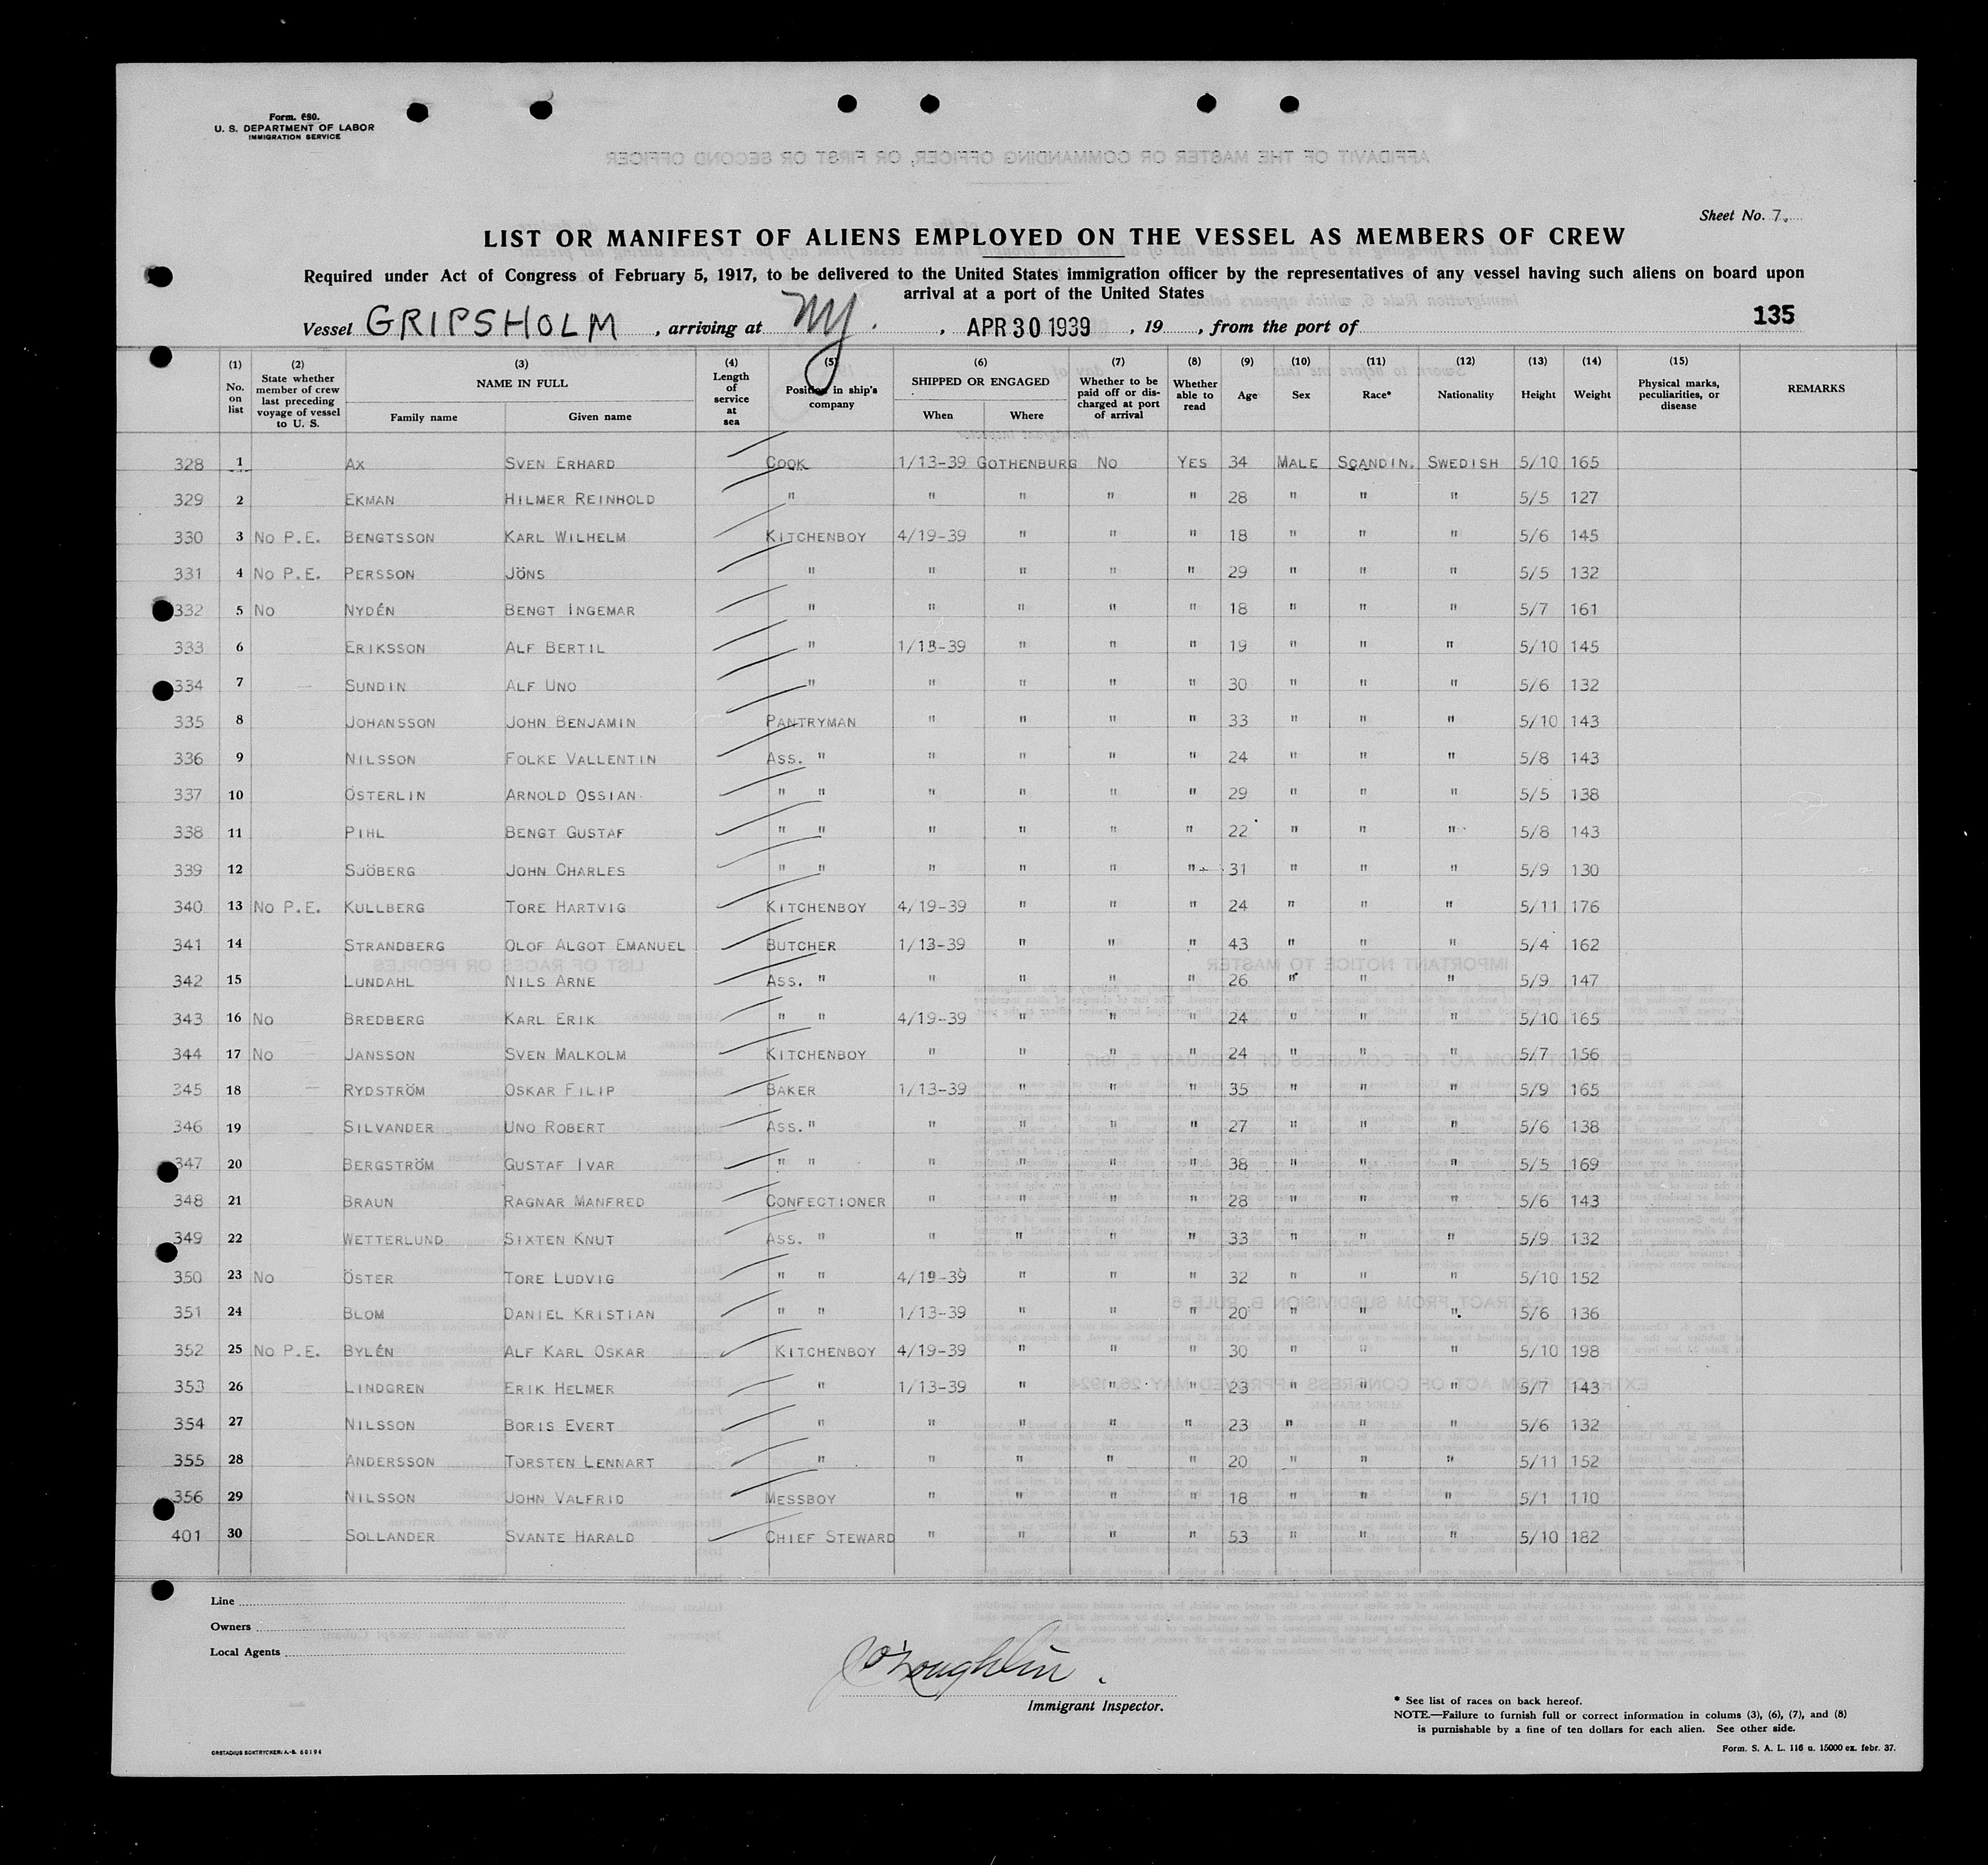 Form. 680.
U. S. DEPARTMENT OF LABOR
IMMIGRATION SERVICE
Sheet No. 7.
LIST OR MANIFEST OF ALIENS EMPLOYED ON THE VESSEL AS MEMBERS OF CREW
Required under Act of Congress of February 5, 1917, to be delivered to the United States immigration officer by the representatives of any vessel having such aliens on board upon
arrival at a port of the United States
135
Vessel GRIPSHOLM , arriving at NY. , APR 30 1939 , 19 , from the port of
(1) No. on list (2) State whether member of crew last preceding voyage of vessel to U. S. (3) NAME IN FULL Family name Given name (4) Length of service at sea (5) Position in ship's company (6) SHIPPED OR ENGAGED When Where (7) Whether to be paid off or discharged at port of arrival (8) Whether able to read (9) Age (10) Sex (11) Race* (12) Nationality (13) Height (14) Weight (15) Physical marks, peculiarities, or disease REMARKS
328 1 AX SVEN ERHARD COOK 1/13-39 GOTHENBURG NO YES 34 MALE SCANDIN. SWEDISH 5/10 165
329 2 EKMAN HILMER REINHOLD " " " " " 28 " " " 5/5 127
330 3 NO P.E. BENGTSSON KARL WILHELM KITCHENBOY 4/19-39 " " " 18 " " " 5/6 145
331 4 NO P.E. PERSSON JÖNS " " " " " 29 " " " 5/5 132
332 5 NO NYDÉN BENGT INGEMAR " " " " " 18 " " " 5/7 161
333 6 ERIKSSON ALF BERTIL " 1/13-39 " " " 19 " " " 5/10 145
334 7 SUNDIN ALF UNO " " " " " 30 " " " 5/6 132
335 8 JOHANSSON JOHN BENJAMIN PANTRYMAN " " " " 33 " " " 5/10 143
336 9 NILSSON FOLKE VALLENTIN ASS. " " " " " 24 " " " 5/8 143
337 10 ÖSTERLIN ARNOLD OSSIAN " " " " " " 29 " " " 5/5 138
338 11 PIHL BENGT GUSTAF " " " " " " 22 " " " 5/8 143
339 12 SJÖBERG JOHN CHARLES " " " " " " 31 " " " 5/9 130
340 13 NO P.E. KULLBERG TORE HARTVIG KITCHENBOY 4/19-39 " " " 24 " " " 5/11 176
341 14 STRANDBERG OLOF ALGOT EMANUEL BUTCHER 1/13-39 " " " 43 " " " 5/4 162
342 15 LUNDAHL NILS ARNE ASS. " " " " " 26 " " " 5/9 147
343 16 NO BREDBERG KARL ERIK " " 4/19-39 " " " 24 " " " 5/10 165
344 17 NO JANSSON SVEN MALKOLM KITCHENBOY " " " " 24 " " " 5/7 156
345 18 RYDSTRÖM OSKAR FILIP BAKER 1/13-39 " " " 35 " " " 5/9 165
346 19 SILVANDER UNO ROBERT ASS. " " " " " 27 " " " 5/6 138
347 20 BERGSTRÖM GUSTAF IVAR " " " " " " 38 " " " 5/5 169
348 21 BRAUN RAGNAR MANFRED CONFECTIONER " " " " 28 " " " 5/6 143
349 22 WETTERLUND SIXTEN KNUT ASS. " " " " " 33 " " " 5/9 132
350 23 NO ÖSTER TORE LUDVIG " " 4/19-39 " " " 32 " " " 5/10 152
351 24 BLOM DANIEL KRISTIAN " " 1/13-39 " " " 20 " " " 5/6 136
352 25 NO P.E. BYLÉN ALF KARL OSKAR KITCHENBOY 4/19-39 " " " 30 " " " 5/10 198
353 26 LINDGREN ERIK HELMER " 1/13-39 " " " 23 " " " 5/7 143
354 27 NILSSON BORIS EVERT " " " " " 23 " " " 5/6 132
355 28 ANDERSSON TORSTEN LENNART " " " " " 20 " " " 5/11 152
356 29 NILSSON JOHN VALFRID MESSBOY " " " " 18 " " " 5/1 110
401 30 SOLLANDER SVANTE HARALD CHIEF STEWARD " " " " 53 " " " 5/10 182
Line
Owners
Local Agents
O'Loughlin.
Immigrant Inspector.
* See list of races on back hereof.
NOTE.—Failure to furnish full or correct information in colums (3), (6), (7), and (8)
is purnishable by a fine of ten dollars for each alien. See other side.
Form. S. A. L. 116 u. 15000 ex. febr. 37.